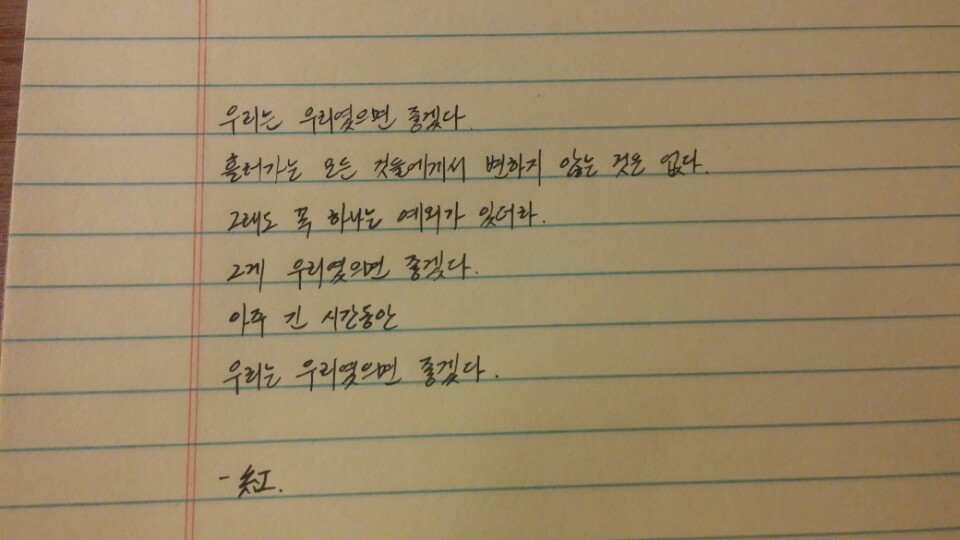 우리는 우리였으면 좋겠다.
흘러가는 모든 것들에게서 변하지 않는 것은 없다.
그래도 꼭 하나는 예외가 있더라.
그게 우리였으면 좋겠다.
아주 긴 시간동안
우리는 우리였으면 좋겠다.
- 紅.